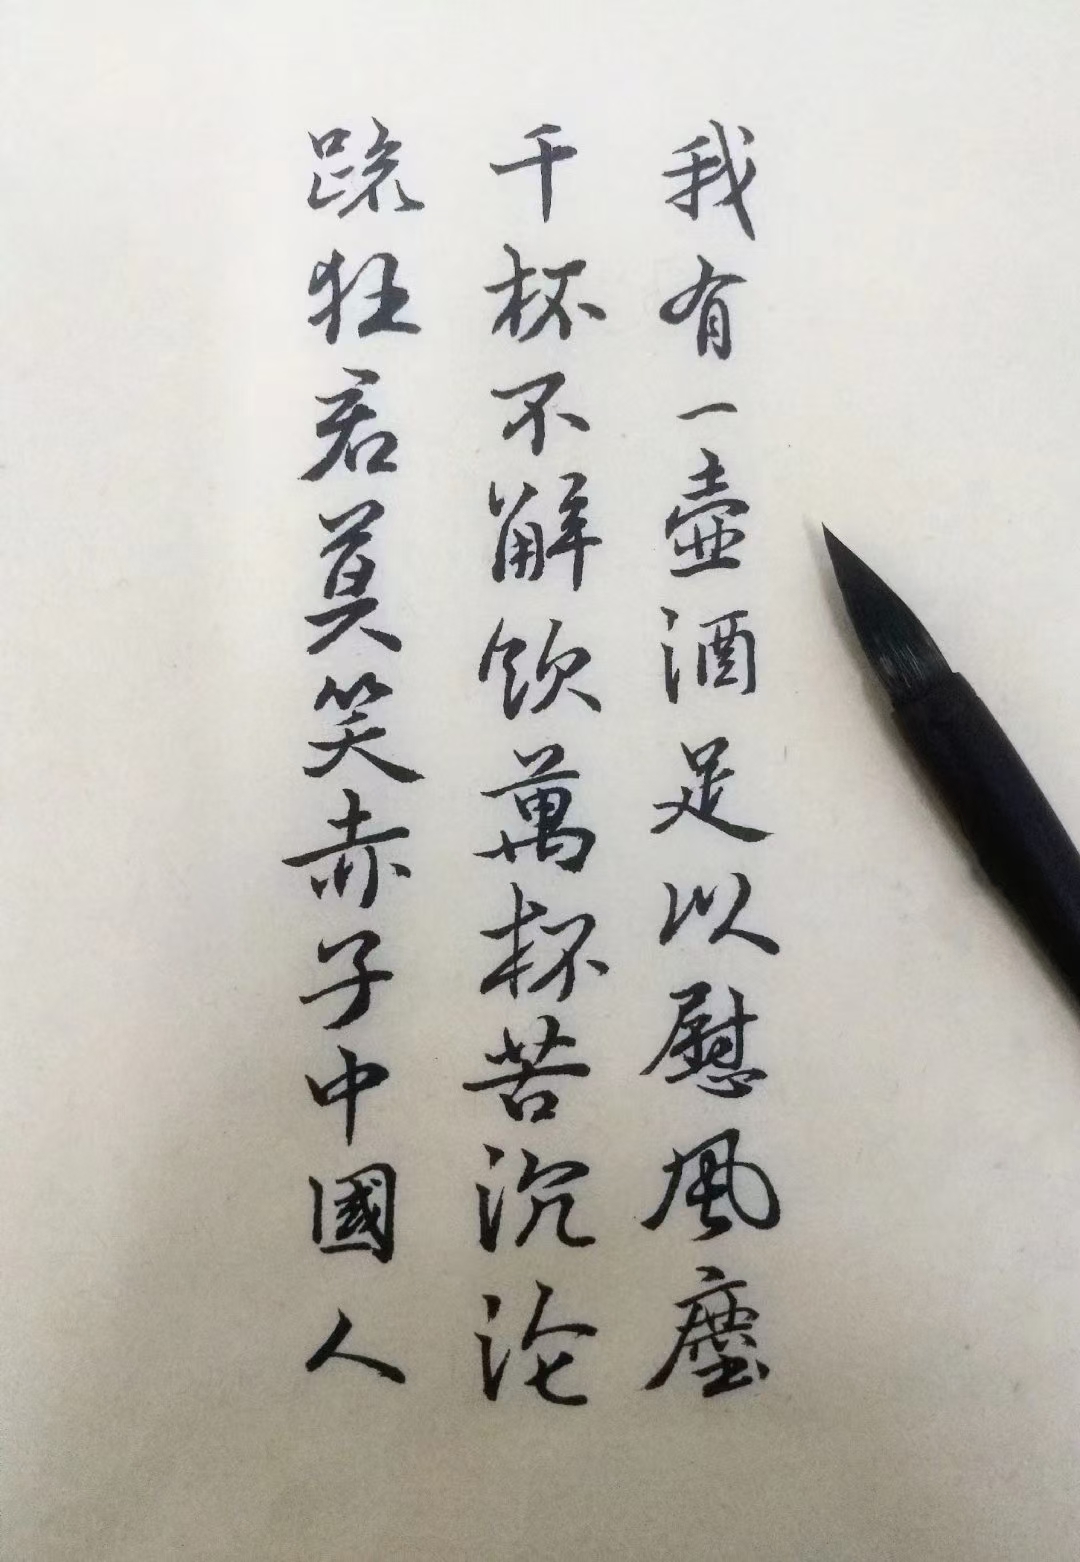 我有一壺酒足以慰風塵
千杯不解飲萬杯苦沉沦
疏狂君莫笑赤子中國人